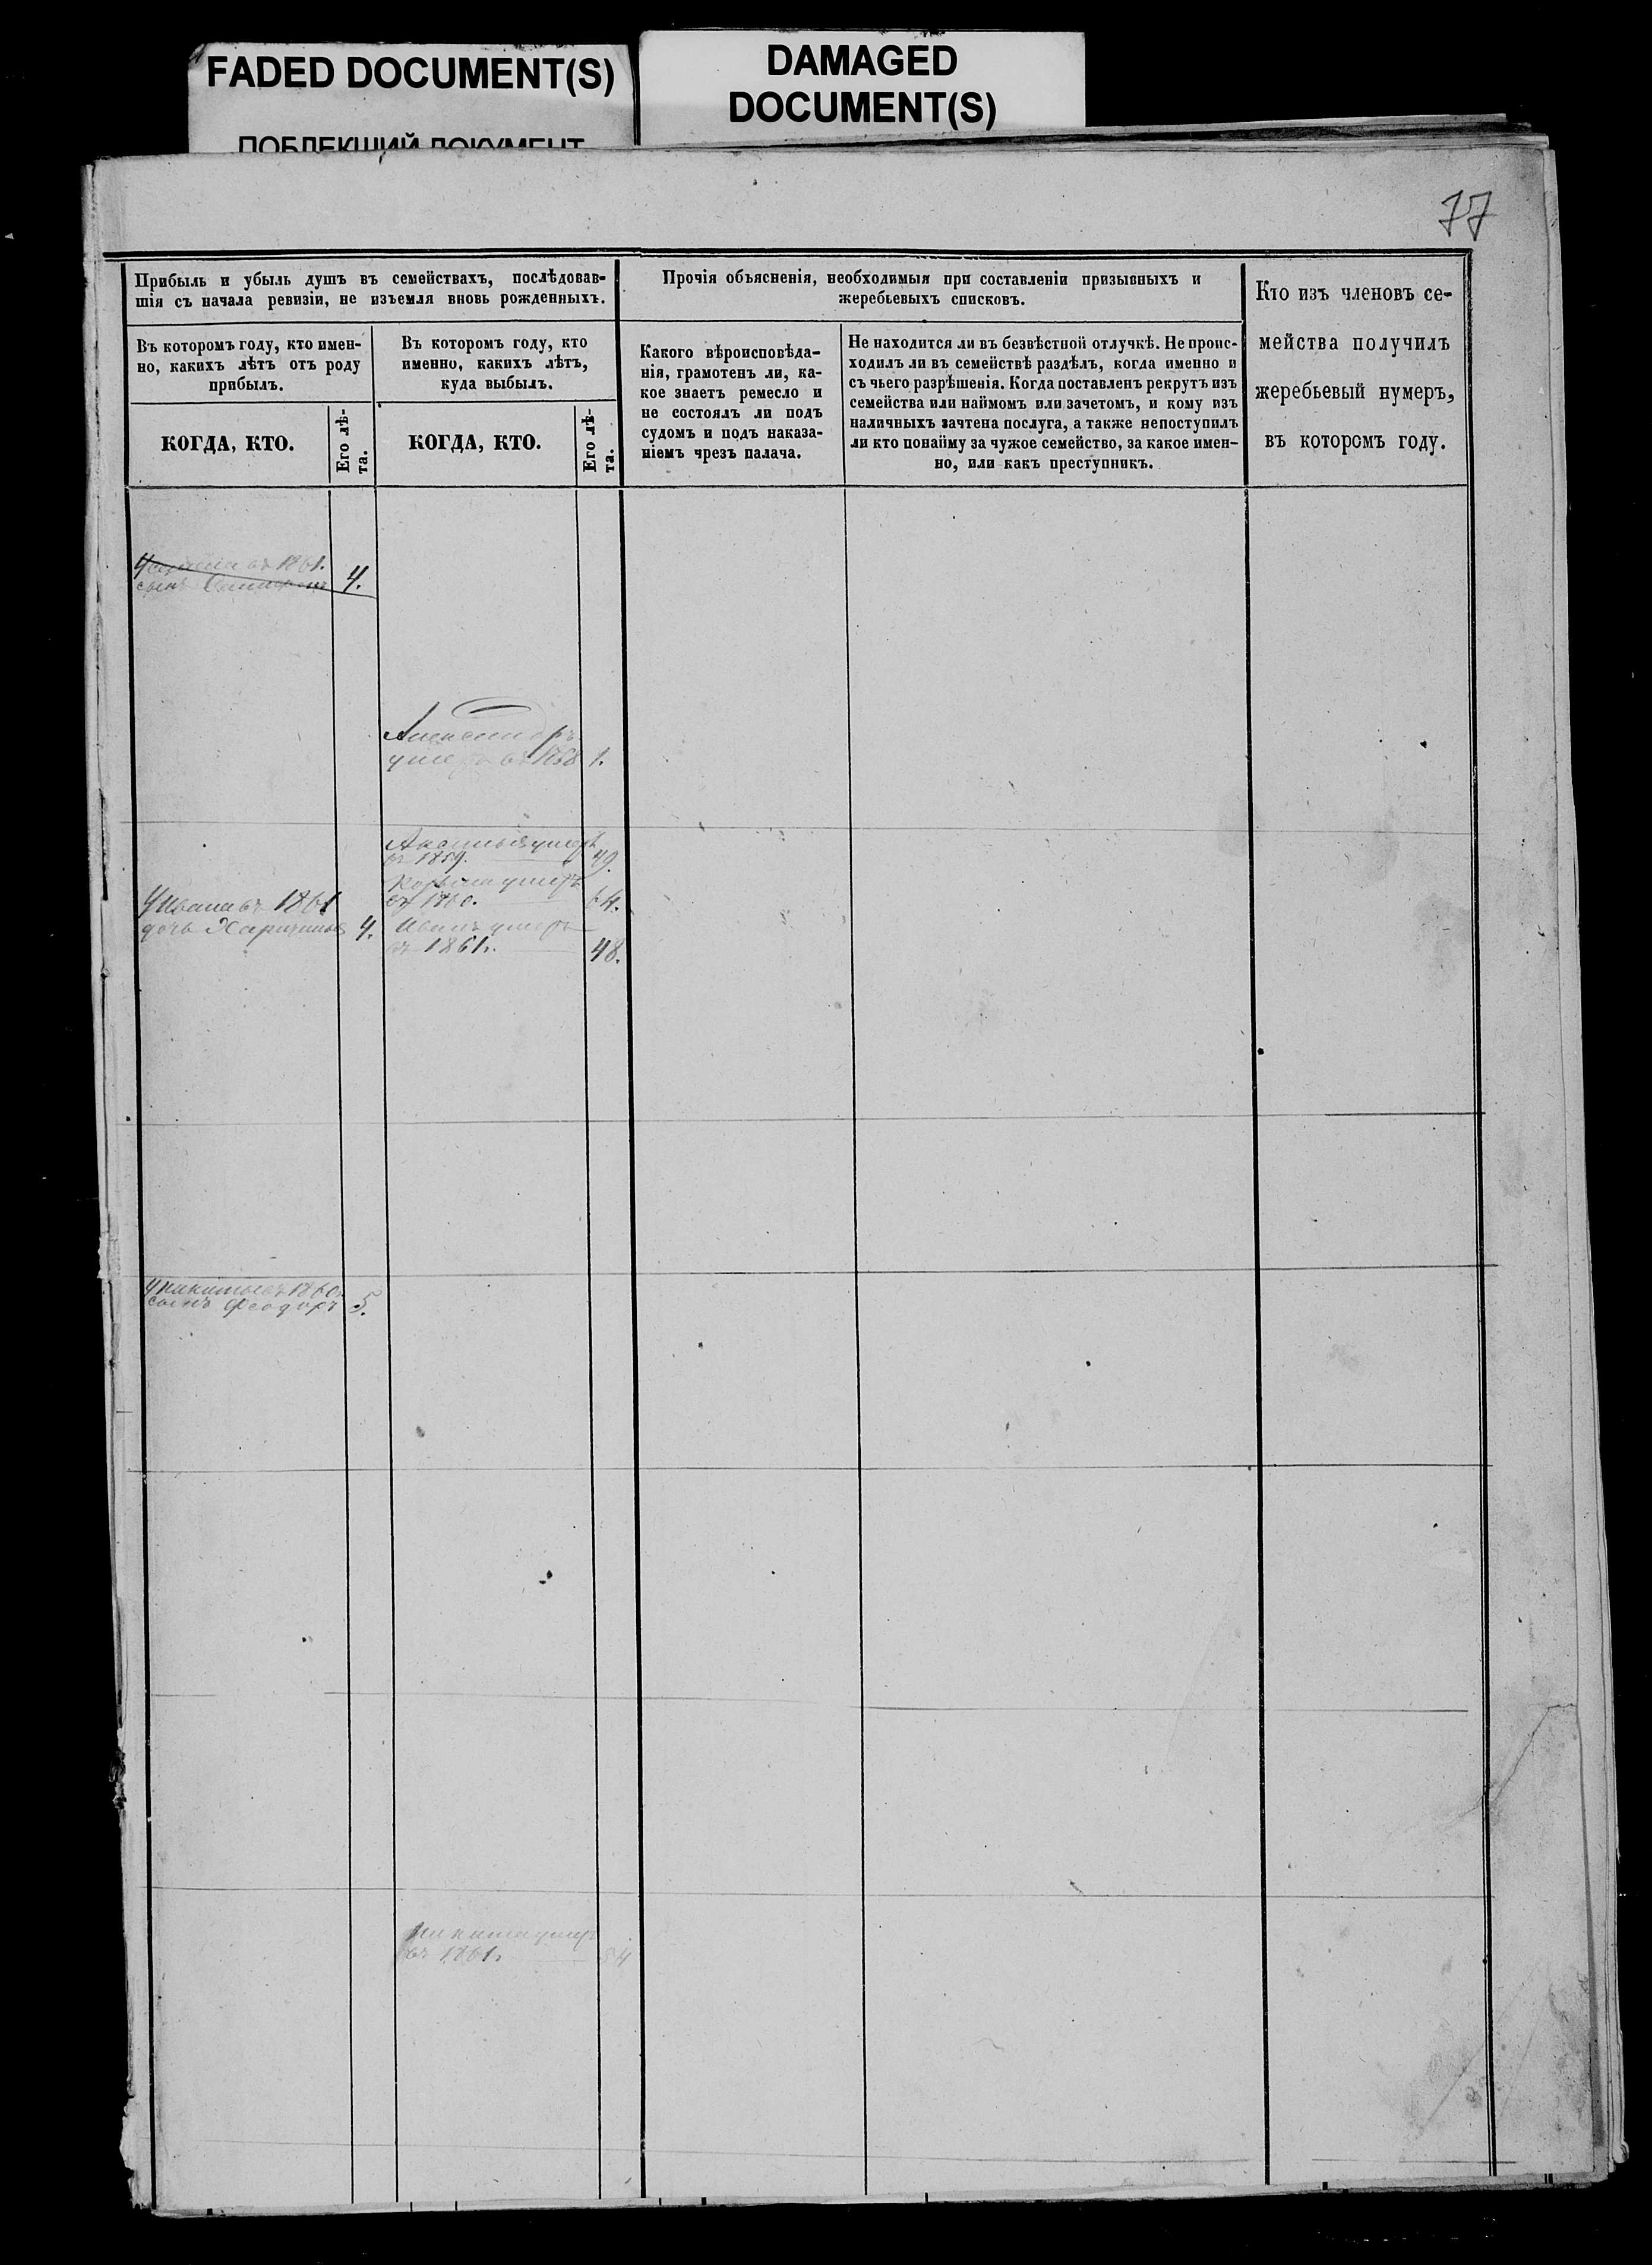 FADED DOCUMENT(S)
ПОБЛЕКШИЙ ДОКУМЕНТ
DAMAGED
DOCUMENT(S)
77
Прибыль и убыль душъ въ семействахъ, послѣдовав-
шія съ начала ревизіи, не изъемля вновь рожденныхъ.
Въ которомъ году, кто имен-
но, какихъ лѣтъ отъ роду
прибылъ.
КОГДА, КТО.
Его лѣ-
та.
Въ которомъ году, кто
именно, какихъ лѣтъ,
куда выбылъ.
КОГДА, КТО.
Его лѣ-
та.
Прочія объясненія, необходимыя при составленіи призывныхъ и
жеребьевыхъ списковъ.
Какого вѣроисповѣда-
нія, грамотенъ ли, ка-
кое знаетъ ремесло и
не состоялъ ли подъ
судомъ и подъ наказа-
ніемъ чрезъ палача.
Не находится ли въ безвѣстной отлучкѣ. Не проис-
ходилъ ли въ семействѣ раздѣлъ, когда именно и
съ чьего разрѣшенія. Когда поставленъ рекрутъ изъ
семейства или наймомъ или зачетомъ, и кому изъ
наличныхъ зачтена послуга, а также непоступилъ
ли кто понайму за чужое семейство, за какое имен-
но, или какъ преступникъ.
Кто изъ членовъ се-
мейства получилъ
жеребьевый нумеръ,
въ которомъ году.
въ 1861.
сынъ 4.
Александръ
умеръ въ 1858 1.
умеръ
въ 1859. 49.
умеръ
въ 1860. 64.
У Ивана въ 1861
дочь Харитинья 4.
Иванъ умеръ
въ 1861. 48.
У Никиты въ 1860.
сынъ Феодоръ 5.
Никита умеръ
въ 1861.